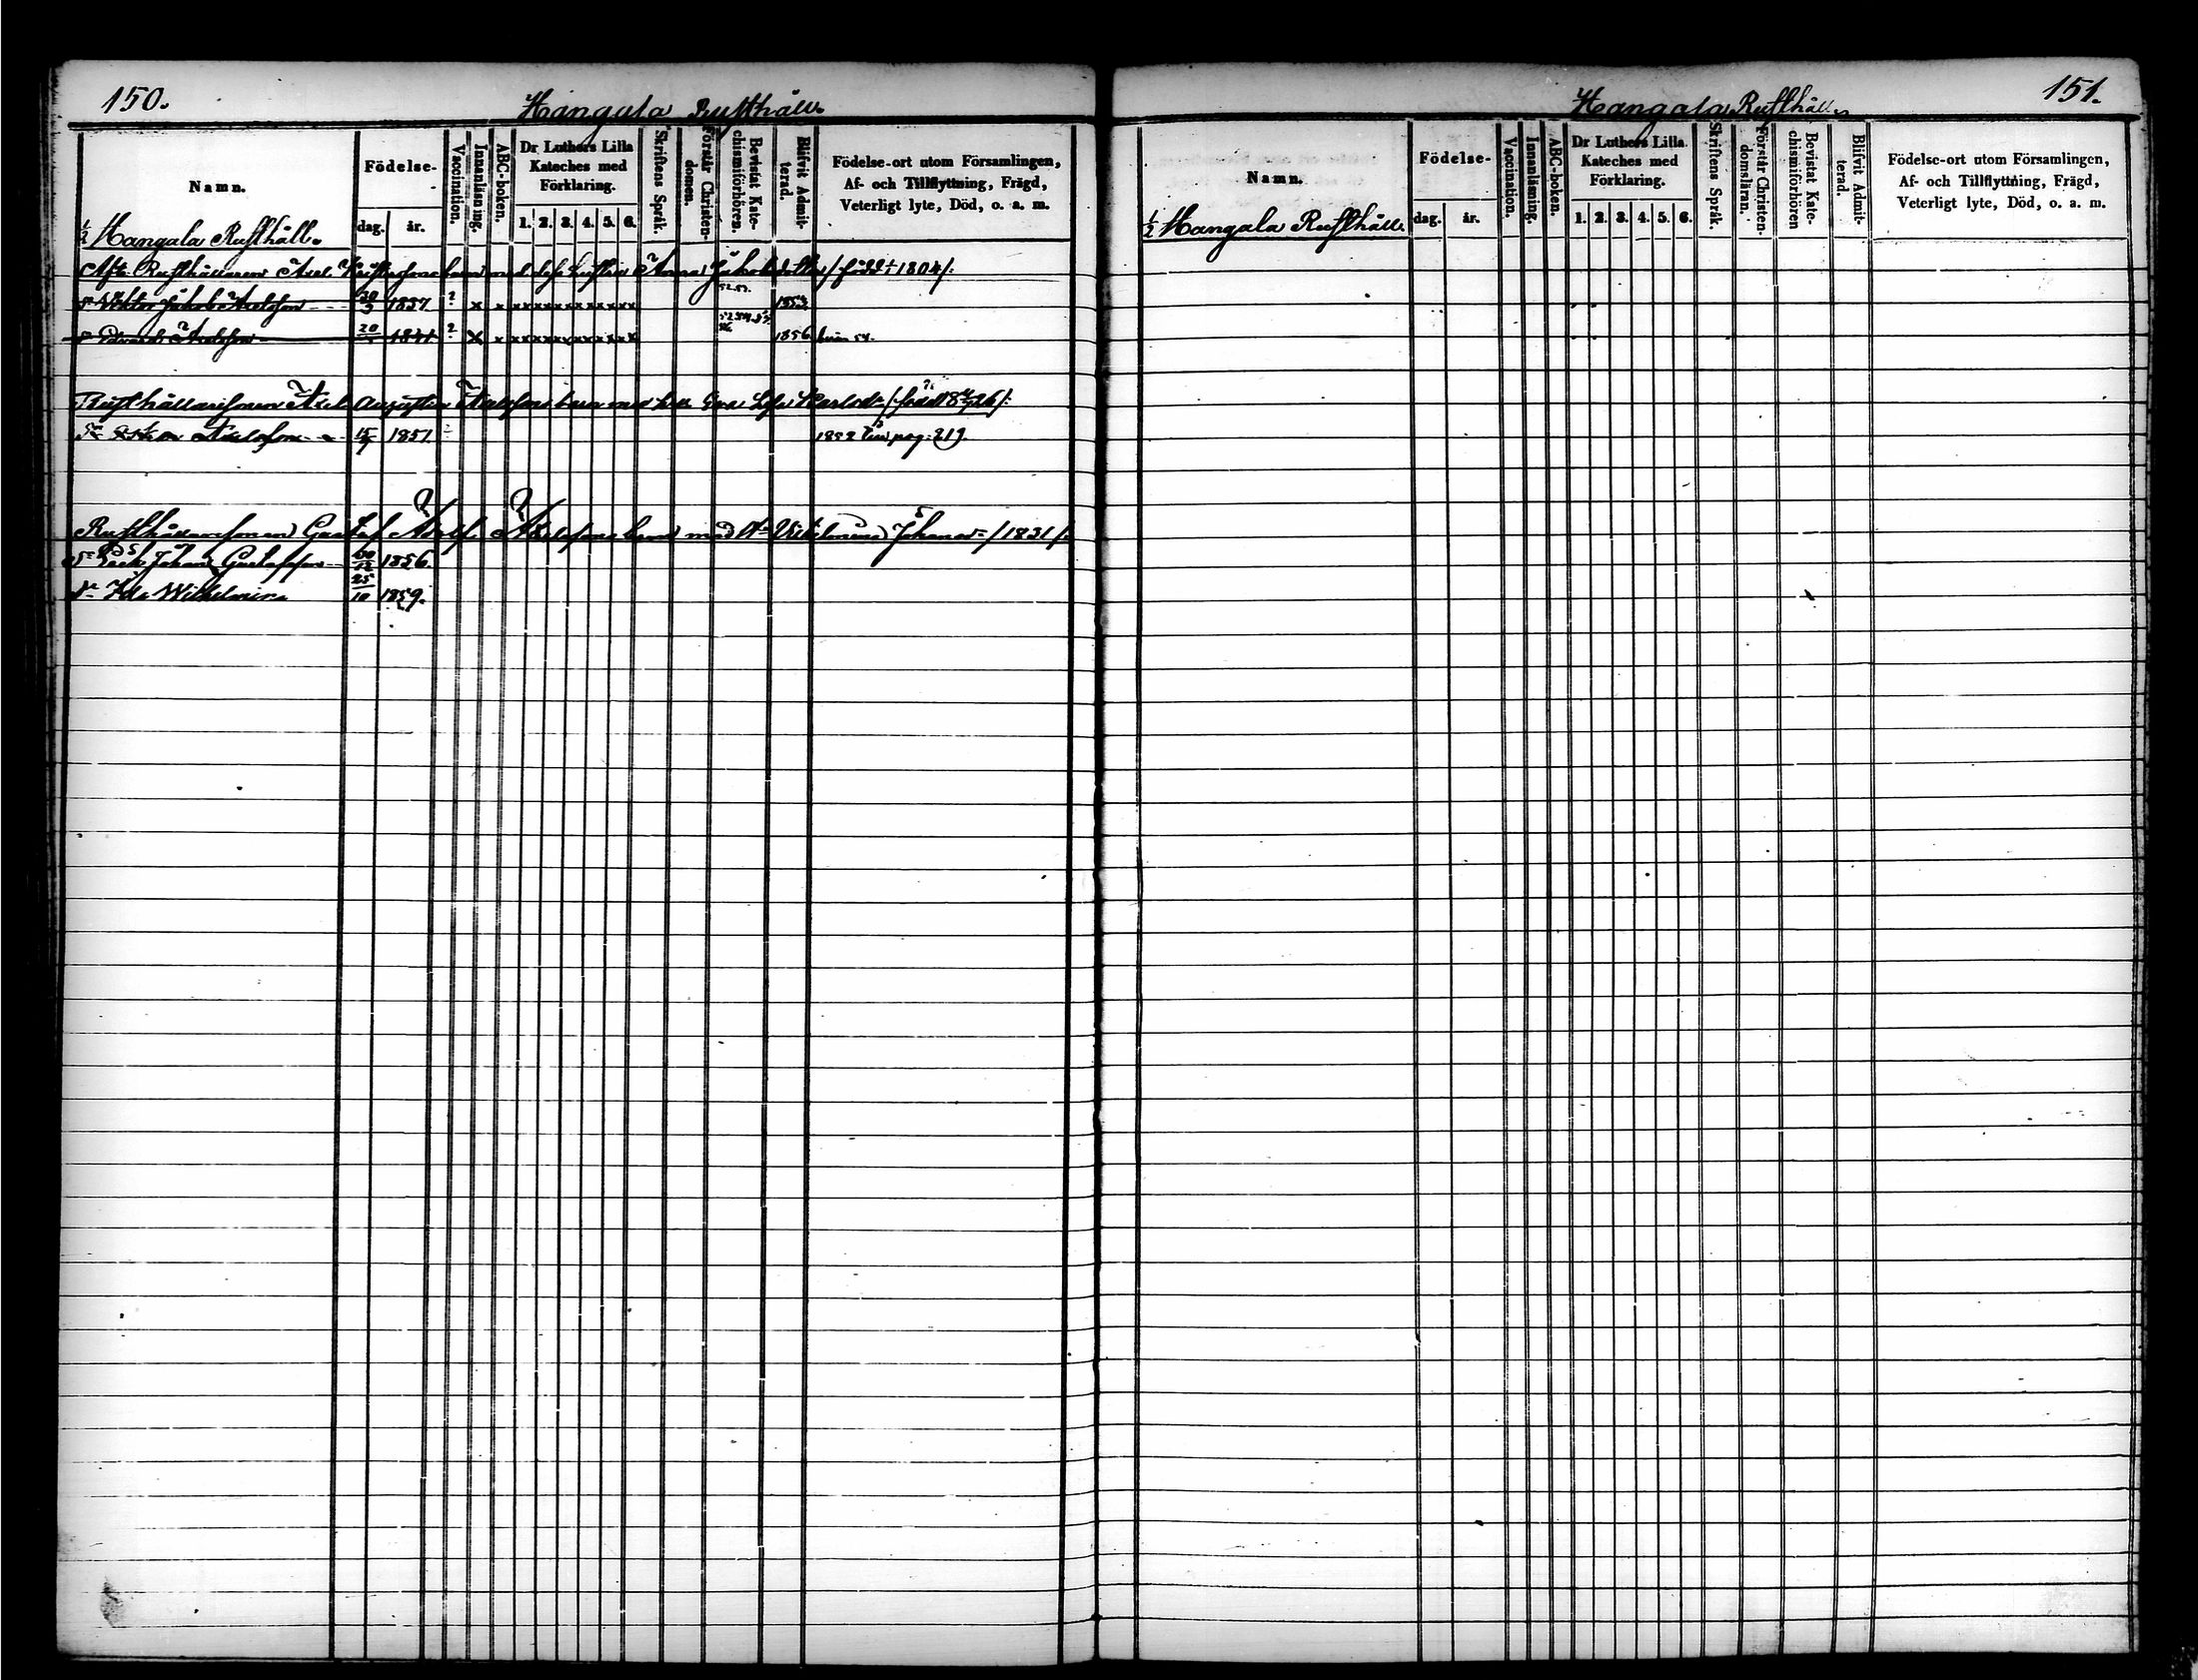 150.
Hangala Rusthåll.
Namn.
Födelse-
dag.
år.
Vaccination.
Innanläsning.
ABC-boken.
Dr Luthers Lilla
Kateches med
Förklaring.
1. 2. 3. 4. 5. 6.
Skriftens Språk.
Förstår Christen-
domen.
Bevistat Kate-
chismiförhören.
Blifvit Admit-
terad.
Födelse-ort utom Församlingen,
Af- och Tillflyttning, Frägd,
Veterligt lyte, Död, o. a. m.
½ Hangala Rusthåll.
Rusthållaren Axel barn med dess hustru Anna /: född 1804 /:
Sn Viktor Jakob Axelsson 1837 ? x x x x x x x x x x x 1853
Sn Edvard Axelsson 20 1841 ? x x x x x x x x x x x 1856
Rusthållaresonen Axel Augustin Axelssons barn med Eva Lisa Karlsdr
Sn Axelsson 15 1851 1852 pag. 219.
Rusthållaresonen Gustaf Adolf Axelssons barn med Vilhelmina Johansdr /: 1831 /:
Sn Erik Johan Gustafsson 1856
Dr Ida Wilhelmina 25/10 1859.
151.
Hangala Rusthåll
Namn.
Födelse-
dag.
år.
Vaccination.
Innanläsning.
ABC-boken.
Dr Luthers Lilla
Kateches med
Förklaring.
1. 2. 3. 4. 5. 6.
Skriftens Språk.
Förstår Christen-
domsläran.
Bevistat Kate-
chismiförhören
Blifvit Admit-
terad.
Födelse-ort utom Församlingen,
Af- och Tillflyttning, Frägd,
Veterligt lyte, Död, o. a. m.
½ Hangala Rusthåll.